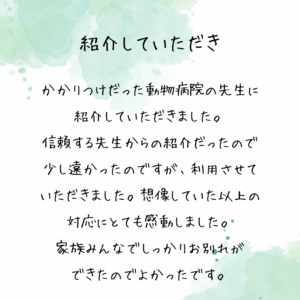 紹介していただき
かかりつけだった動物病院の先生に
紹介していただきました。
信頼する先生からの紹介だったので
少し遠かったのですが、利用させて
いただきました。想像していた以上の
対応にとても感動しました。
家族みんなでしっかりお別れが
できたのでよかったです。